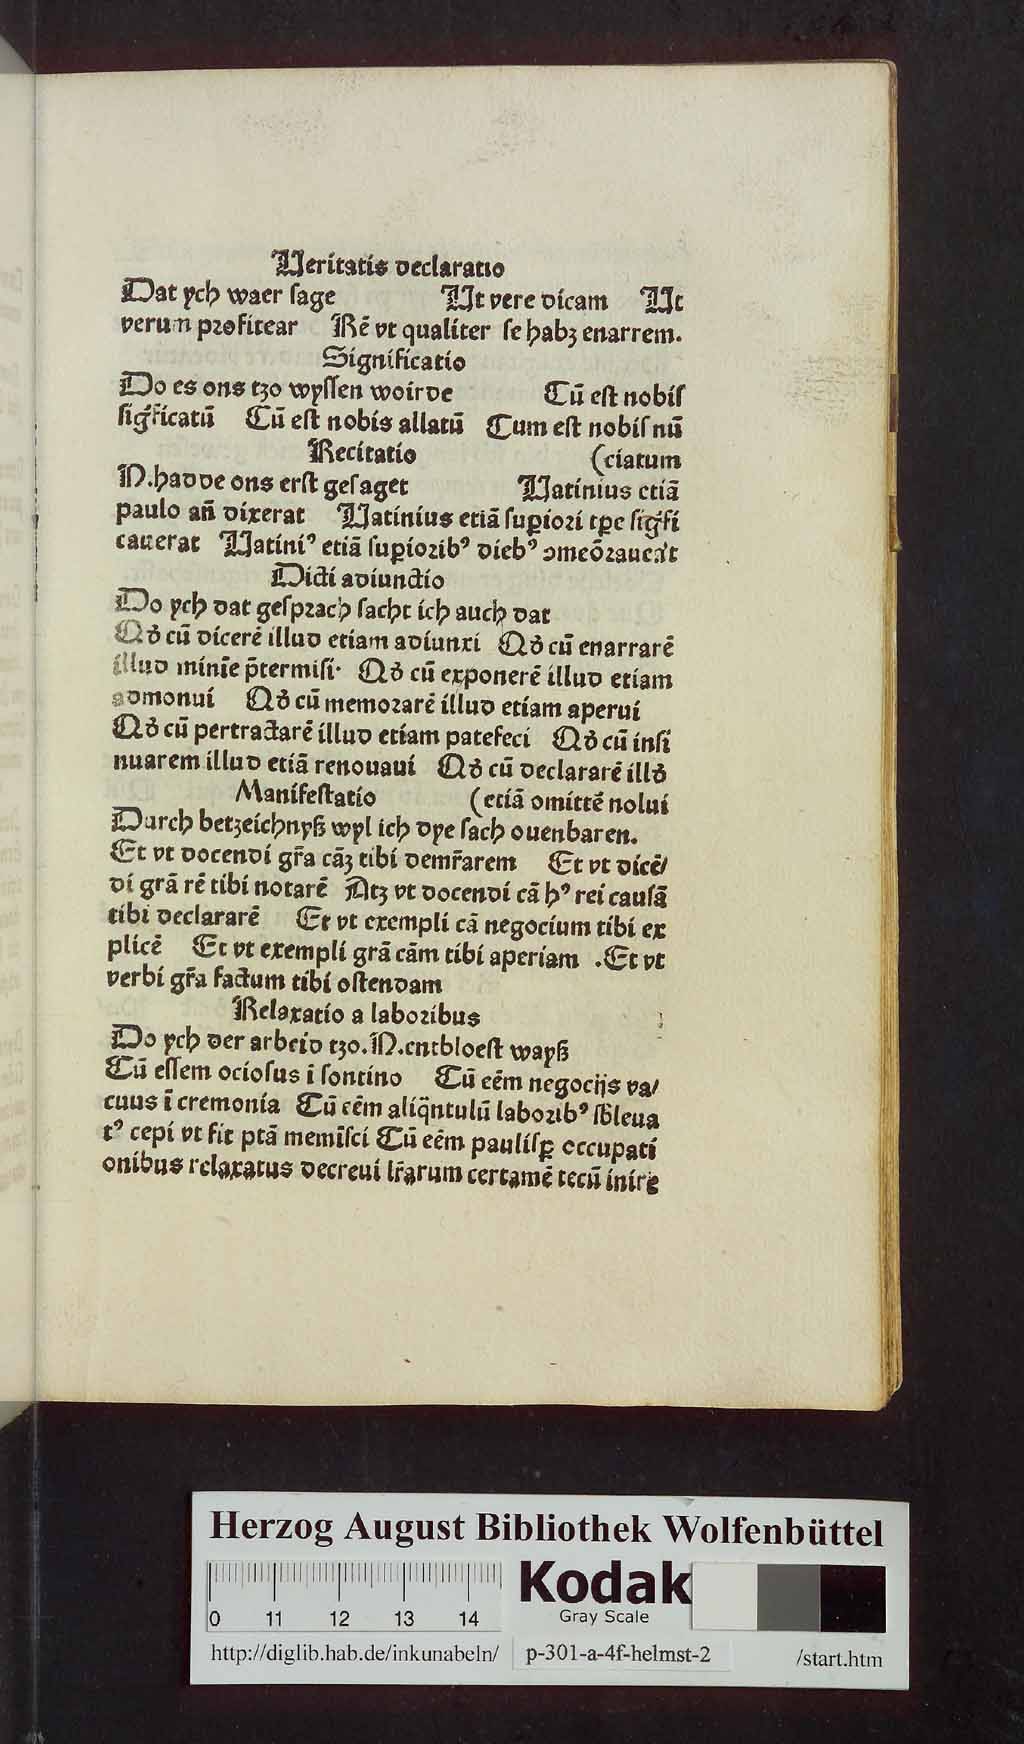 Ueritatis declaratio
Dat ych waer ſage Ut vere dicam Ut
verum profitear Rē vt qualiter ſe habꝫ enarrem.
Significatio
Do es ons tzo wyſſen woirde Cū eſt nobiſ
ſigꝰficatū Cū eſt nobis allatū Cum eſt nobiſ nū
Recitatio (ciatum
N.hadde ons erſt geſaget Uatinius etiā
paulo an̄ dixerat Uatinius etiā ſuꝑiori tꝑe
cauerat Uatiniꝰ etiā ſuꝑioribꝰ diebꝰ
Dicti adiunctio
Do ych dat geſprach ſacht ich auch dat
Qđ cū dicerē illud etiam adiunxi Qđ cū enarrarē
illud minīe p̄termiſi· Qđ cū exponerē illud etiam
admonui Qđ cū memorarē illud etiam aperui
Qđ cū pertractarē illud etiam patefeci Qđ cū inſi
nuarem illud etiā renouaui Qđ cū declararē illđ
Manifeſtatio (etiā omittē nolui
Durch betzeichnyß wyl ich dye ſach ouenbaren.
Et vt docendi gr̄a cāꝫ tibi demr̄arem Et vt dicē/
di grā rē tibi notarē Atꝫ vt docendi cā hꝰ rei cauſā
tibi declararē Et vt exempli cā negocium tibi ex
plicē Et vt exempli grā cām tibi aperiam .Et vt
verbi gr̄a factum tibi oſtendam
Relaxatio a laboribus
Do ych der arbeid tzo.N.entbloeſt wayß
Cū eſſem ocioſus ī fontino Cū eēm negocijs va/
cuus ī cremonia Cū eēm aliq̄ntulū laboribꝰ ſb̄leua
tꝰ cepi vt fit ptā memīſci Cū eēm pauliſꝑ occupati
onibus relaxatus decreui lr̄arum certamē tecū inire
Herzog August Bibliothek Wolfenbüttel
Kodak
Gray Scale
0 11 12 13 14
http://diglib.hab.de/inkunabeln/ p-301-a-4f-helmst-2 /start.htm